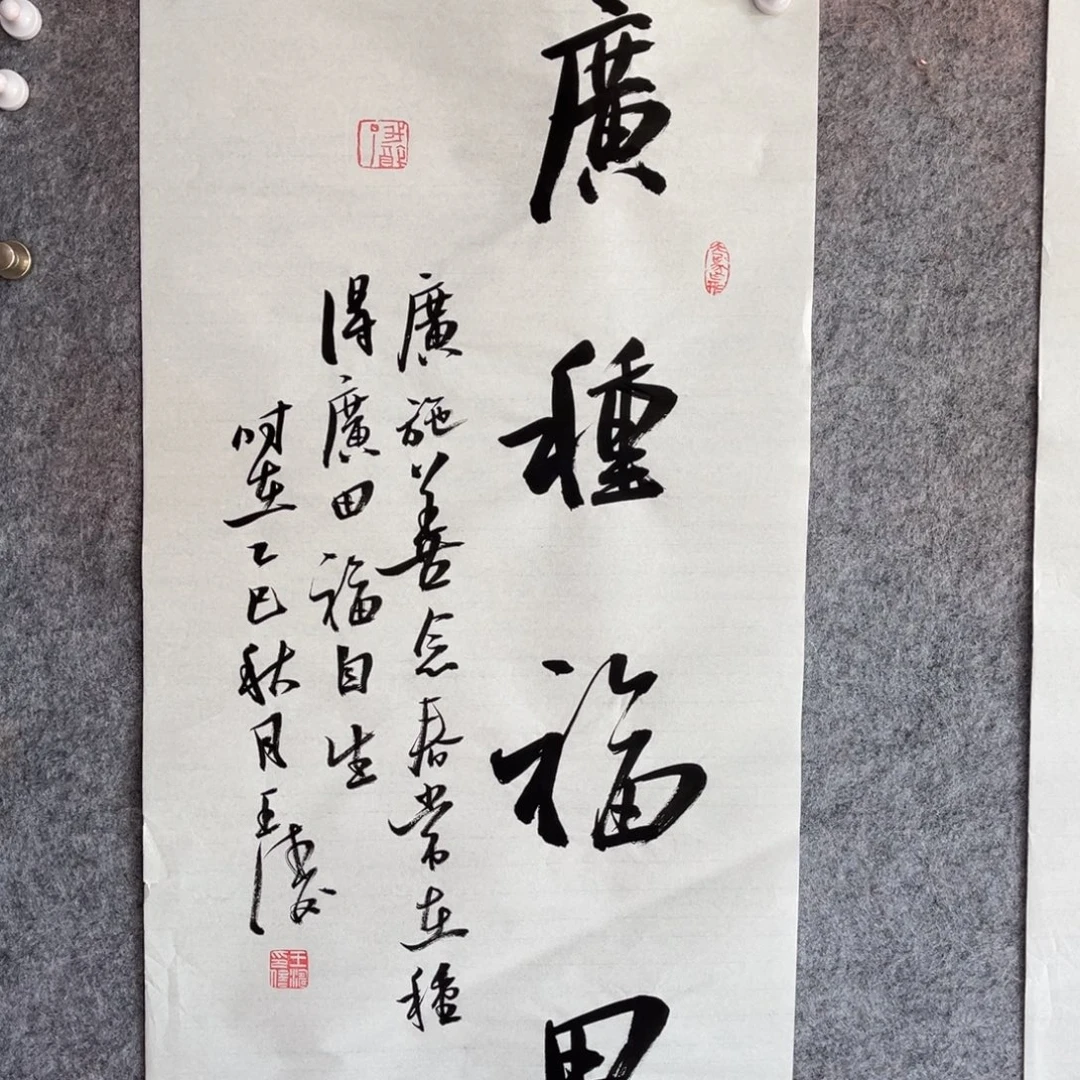 廣種福田
廣施善念春常在種
得廣田福自生
时在乙巳秋月王